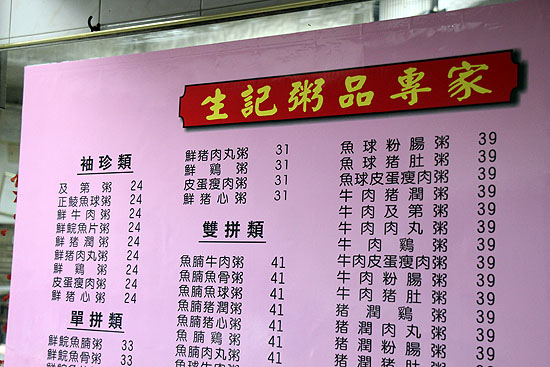 生記粥品專家
袖珍類
及第粥 24
正鯪魚球粥 24
鮮牛肉粥 24
鮮鯇魚片粥 24
鮮猪潤粥 24
鮮猪肉丸粥 24
鮮鷄粥 24
皮蛋瘦肉粥 24
鮮猪心粥 24
單拼類
鮮鯇魚腩粥 33
鮮鯇魚骨粥 33
鮮猪肉丸粥 31
鮮鷄粥 31
皮蛋瘦肉粥 31
鮮猪心粥 31
雙拼類
魚腩牛肉粥 41
魚腩魚骨粥 41
魚腩魚球粥 41
魚腩猪潤粥 41
魚腩猪心粥 41
魚腩鷄粥 41
魚腩肉丸粥 41
魚球牛肉粥 41
魚球粉腸粥 39
魚球猪肚粥 39
魚球皮蛋瘦肉粥 39
牛肉猪潤粥 39
牛肉及第粥 39
牛肉肉丸粥 39
牛肉鷄粥 39
牛肉皮蛋瘦肉粥 39
牛肉粉腸粥 39
牛肉猪肚粥 39
猪潤鷄粥 39
猪潤肉丸粥 39
猪潤粉腸粥 39
猪潤猪肚粥 39